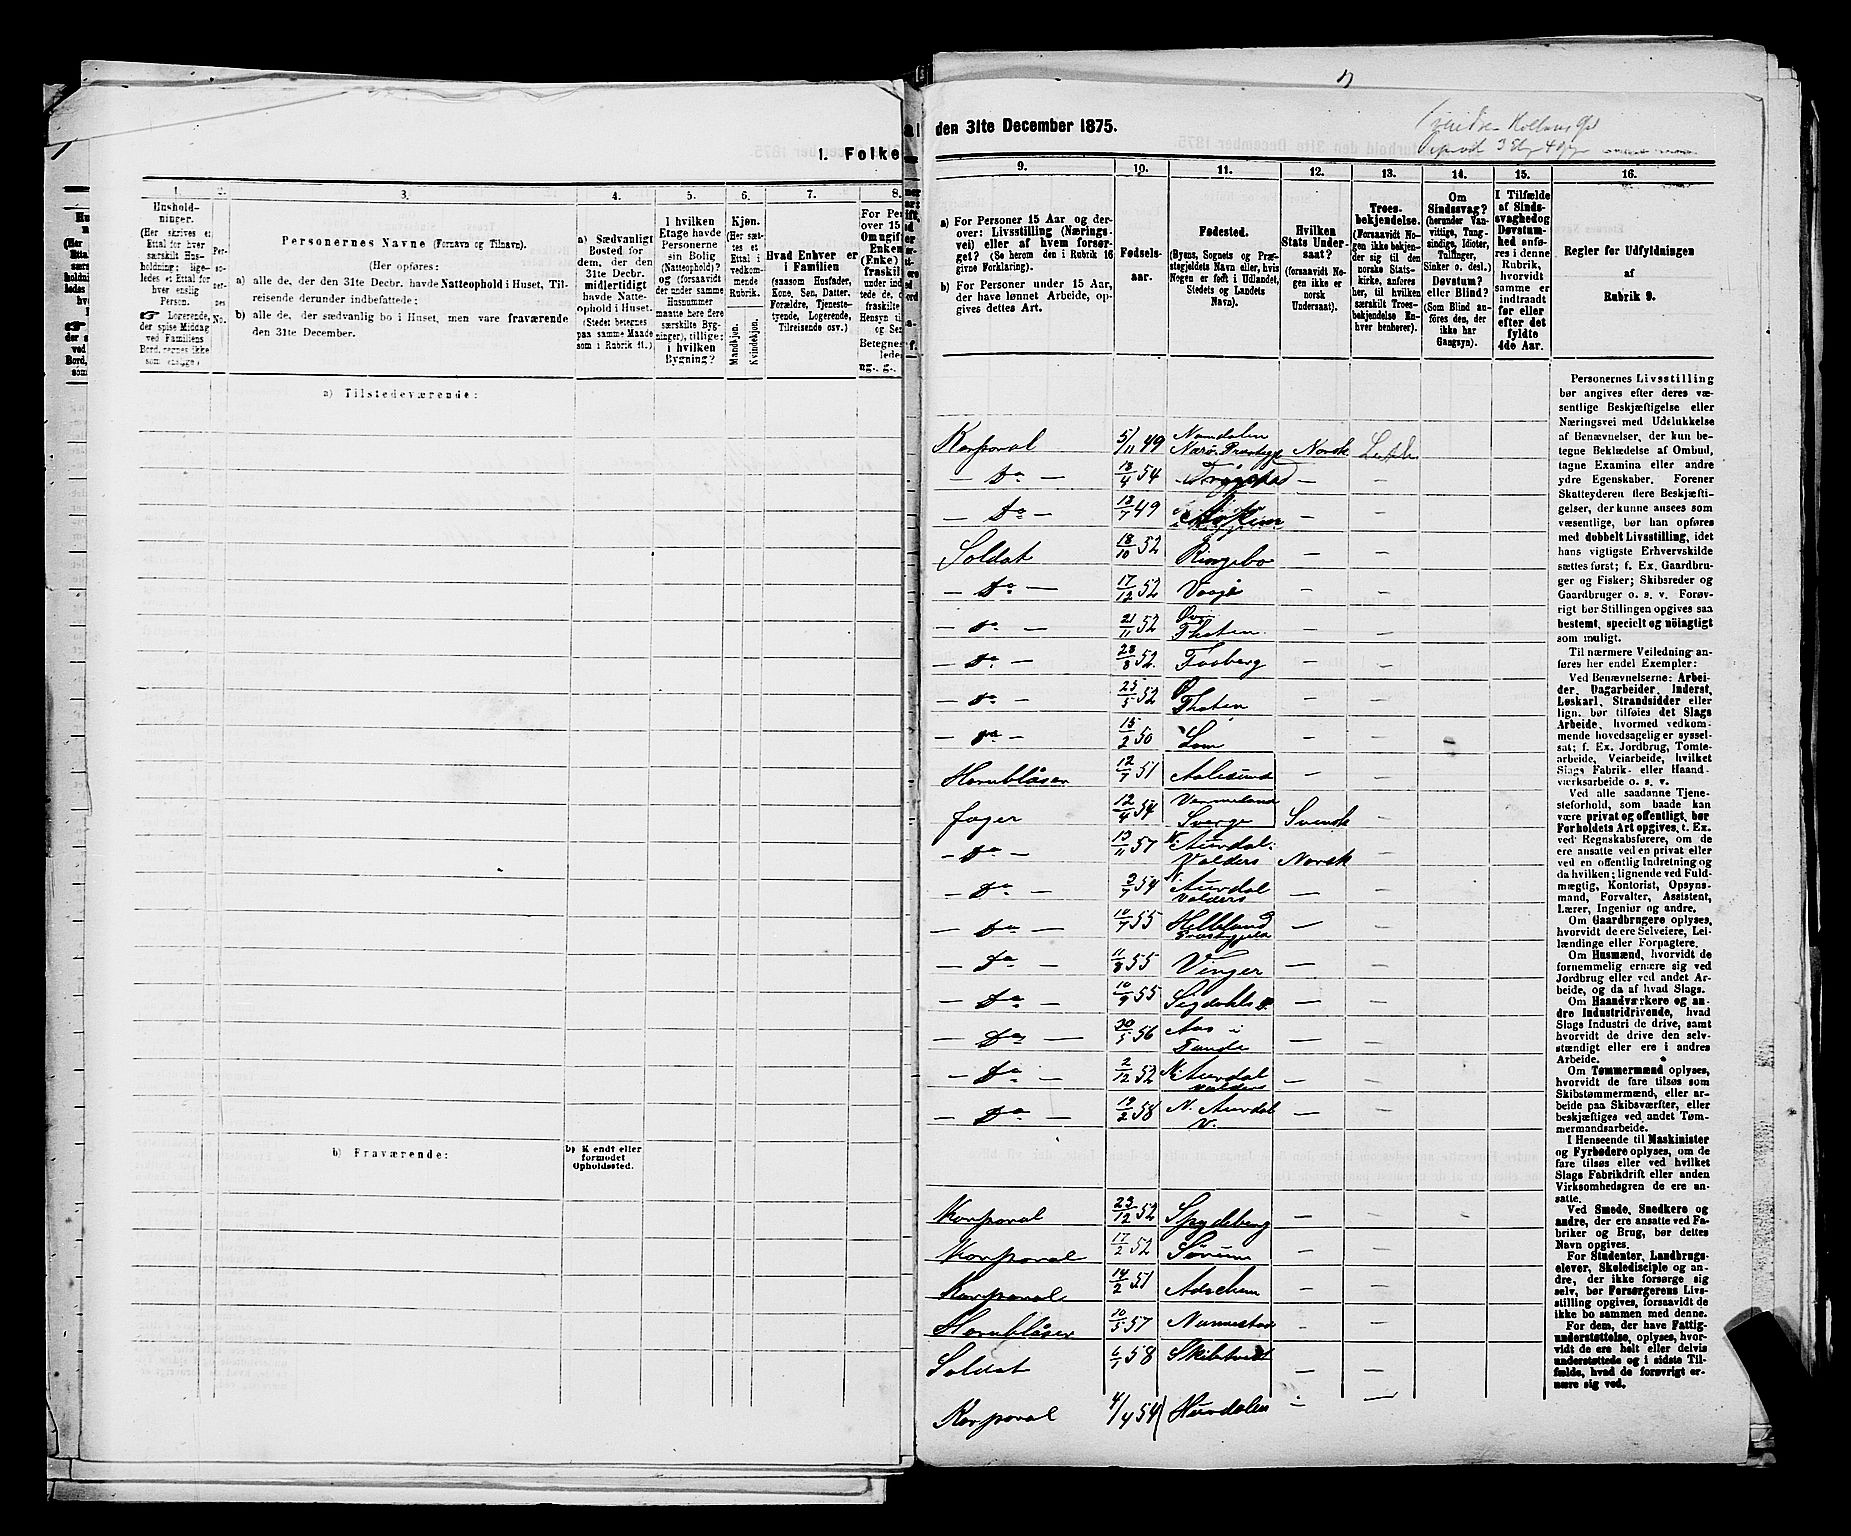 1. Folke
1.
2.
3.
4.
5.
6.
7.
8.
Hushold-
ninger.
(Her skrives et
Ettal for hver
særskilt Hus-
holdning; lige-
ledes et Ettal for
hver enslig
Person.
☞ Logerende,
der spise Middag
ved Familiens
Bord, regnes ikke
som enslige.)
Per-
so-
ner-
nes
No.
Personernes Navne (Fornavn og Tilnavn).
(Her opføres:
a) alle de, der den 31te Decbr. havde Natteophold i Huset, Til-
reisende derunder indbefattede;
b) alle de, der sædvanlig bo i Huset, men vare fraværende
den 31te December.
a) Sædvanligt
Bosted for
dem, der den
31te Decbr.
midlertidigt
havde Natte-
ophold i Huset.
(Stedet betegnes
paa samme Maade
som i Rubrik 11.)
I hvilken
Etage havde
Personerne
sin Bolig
(Natteophold)?
og (forsaavidt
der under samme
Husnummer
maatte høre flere
særskilte Byg-
ninger), tillige:
i hvilken
Bygning?
Kjøn.
(Her sæt-
tes et
Ettal i
vedkom-
mende
Rubrik.
Mandkjøn.
Kvindekjøn.
Hvad Enhver er
i Familien
(saasom Husfader,
Kone, Søn, Datter,
Forældre, Tjeneste-
tyende, Logerende,
Tilreisende osv.)
a) Tilstedeværende:
b) Fraværende:
b) Kjendt eller
formodet
Opholdssted.
den 31te December 1875.
9.
10.
11.
12.
13.
14.
15.
16.
a) For Personer 15 Aar og der-
over: Livsstilling (Nærings-
vei) eller af hvem forsør-
get? (Se herom den i Rubrik 16
givne Forklaring).
b) For Personer under 15 Aar,
der have lønnet Arbeide, op-
gives dettes Art.
Fødsels-
aar.
Fødested.
(Byens, Sognets og Præ-
stegjeldets Navn eller, hvis
Nogen er født i Udlandet,
Stedets og Landets
Navn).
Hvilken
Stats Under-
saat?
(forsaavidt No-
gen ikke er
norsk
Undersaat).
Troes-
bekjendelse.
(Forsaavidt No-
gen ikke bekjen-
der sig til den
norske Stats-
kirke, anføres
her, til hvilken
særskilt Troes-
bekjendelse En-
hver henhører).
Om
Sindssvag?
(herunder Van-
vittige, Tung-
sindige, Idioter,
Tullinger,
Sinker o. desl.)
Døvstum?
eller Blind?
(Som Blind an-
føres den, der
ikke har
Gangsyn).
I Tilfælde
af Sinds-
svaghed og
Døvstum-
hed anfø-
res i denne
Rubrik,
hvorvidt
samme er
indtraadt
før eller
efter det
fyldte
4de Aar.
Regler for Udfyldningen
af
Rubrik 9.
Korporal 5/11 49 Namdalen Nærø Præstegj Norsk
— do — 18/4 54 Trøgstad — —
— do — 13/7 49 — —
Soldat 18/10 52 Ringebo — —
— do — 17/12 52 Vaage — —
— do — 21/11 52 Thoten. — —
— do — 28/8 52. Faaberg — —
— do — 25/5 52 Ø Thoten — —
— do — 15/2 50 Lom — — —
Hornblåser 12/7 51 Aalesund — —
Jæger 12/4 54 Vermeland Sverge Svensk —
— do — 13/11 57 N. Aurdal. Valders Norsk —
— do — 3/7 54 N. Aurdal Valders — —
— do — 10/7 55 Helleland Præstegjeld — —
— do — 11/8 55 Vinger — —
— do — 10/9 55 Sigdahls P. — —
— do — 30/5 56 Aas i — —
— do — 2/12 52 N. Aurdal Valders — —
— do — 19/2 58 N. Aurdal V. — —
Korporal 23/12 52 Spydeberg — — —
Korporal 17/2 52 Sørum — —
Korporal 14/2 51 — —
Hornblåser 10/5 57 Nannestad — —
Soldat 6/1 58 Skibtvedt — —
Korporal 4/4 54 Hurdalen — —
Personernes Livsstilling
bør angives efter deres væ-
sentlige Beskjæftigelse eller
Næringsvei med Udelukkelse
af Benævnelser, der kun be-
tegne Beklædelse af Ombud,
tagne Examina eller andre
ydre Egenskaber. Forener
Skatteyderen flere Beskjæfti-
gelser, der kunne ansees som
væsentlige, bør han opføres
med dobbelt Livsstilling, idet
hans vigtigste Erhvervskilde
sættes først; f. Ex. Gaardbru-
ger og Fisker; Skibsreder og
Gaardbruger o. s. v. Forøv-
rigt bør Stillingen opgives saa
bestemt, specielt og nöiagtigt
som muligt.
Til nærmere Veiledning an-
føres her endel Exempler:
Ved Benævnelserne: Arbei-
der, Dagarbeider, Inderst,
Løskarl, Strandsidder eller
lign. bør tilføies det Slags
Arbeide, hvormed vedkom-
mende hovedsagelig er syssel-
sat; f. Ex. Jordbrug, Tomte-
arbeide, Veiarbeide, hvilket
Slags Fabrik- eller Haand-
værksarbeide o. s. v.
Ved alle saadanne Tjene-
steforhold, som baade kan
være privat og offentligt, bør
Forholdets Art opgives, t. Ex.
ved Regnskabsførere, om de
ere ansatte ved en privat eller
ved en offentlig Indretning og
da hvilken; lignende ved Fuld-
mægtig, Kontorist, Opsyns-
mand, Forvalter, Assistent,
Lærer, Ingeniør og andre.
Om Gaardbrugere oplyses,
hvorvidt de ere Selveiere, Lei-
lændinge eller Forpagtere.
Om Husmænd, hvorvidt de
fornemmelig ernære sig ved
Jordbrug eller ved andet Ar-
beide, og da af hvad Slags.
Om Haandværkere og an-
dre Industridrivende, hvad
Slags Industri de drive, samt
hvorvidt de drive den selv-
stændigt eller ere i andres
Arbeide.
Om Tømmermænd oplyses,
hvorvidt de fare tilsøs som
Skibstømmermænd, eller ar-
beide paa Skibsværfter, eller
beskjæftiges ved andet Tøm-
mermandsarbeide.
I Henseende til Maskinister
og Fyrbødere oplyses, om de
fare tilsøs eller ved hvilket
Slags Fabrikdrift eller anden
Virksomhedsgren de ere an-
satte.
Ved Smede, Snedkere og
andre, der ere ansatte ved Fa-
briker og Brug, bør dettes
Navn opgives.
For Studenter, Landbrugs-
elever, Skoledisciple og an-
dre, der ikke forsørge sig
selv, bør Forsørgerens Livs-
stilling opgives, forsaavidt de
ikke bo sammen med denne.
For dem, der have Fattig-
understøttelse, oplyses, hvor-
vidt de ere helt eller delvis
understøttede og i sidste Til-
fælde, hvad de forøvrigt er-
nære sig ved.